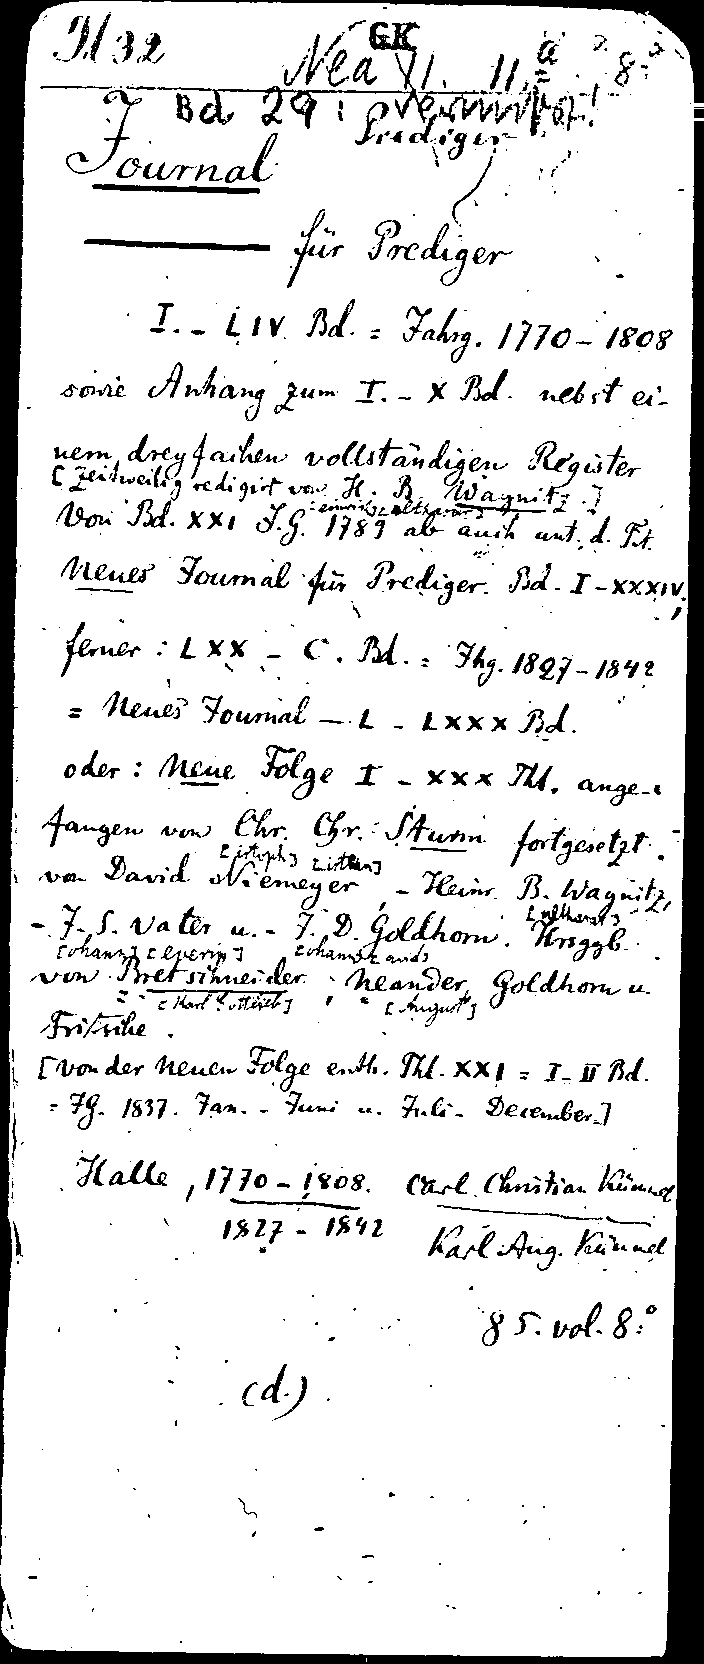 GK
Nea XI. 11.a 8:o
Bd 29: vermißt!
Prediger
Journal
für Prediger
I. - LIV. Bd. = Jahrg. 1770 - 1808
sowie Anhang zum I. - X Bd. nebst ei-
nem dreyfachen vollständigen Register
[Zeitweilig redigirt von H. B. Wagnitz.]
[einrich] [althasar]
Von Bd. XXI J.G. 1789 ab auch unt. d. Tit.
Neues Journal für Prediger. Bd. I - XXXIV;
ferner: LXX - C. Bd. = Jhg. 1827 - 1842
= Neues Journal - L - LXXX Bd.
oder: Neue Folge I - XXX Thl. ange-
fangen von Chr. Chr. Sturm fortgesetzt
[istoph] [istian]
von David Niemeyer, - Heinr. B. Wagnitz,
[althasar]
- J. S. Vater u. - J. D. Goldhorn. Hrsggb.
[ohann] [everin] [ohann] [avid]
von Bretschneider, Neander, Goldhorn u.
[Karl Gottlieb] [August]
Fritsche.
[Von der Neuen Folge enth. Thl. XXI = I - II Bd.
= JG. 1837. Jan. - Juni u. Juli - December.]
Halle, 1770 - 1808. Carl Christian Kümmel
1827 - 1842 Karl Aug. Kümmel
85. vol. 8:o
(d.)